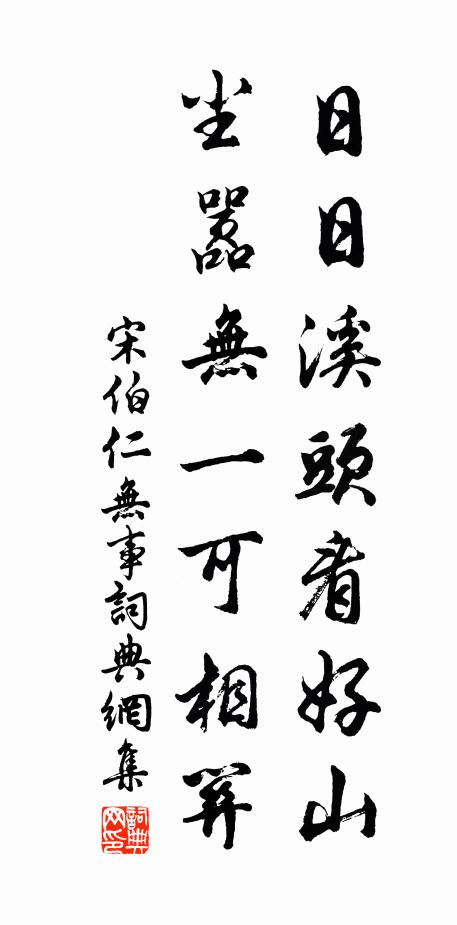 日日溪頭看好山
尘嚣無一可相關
宋伯仁無事詞典網集
詞典网印